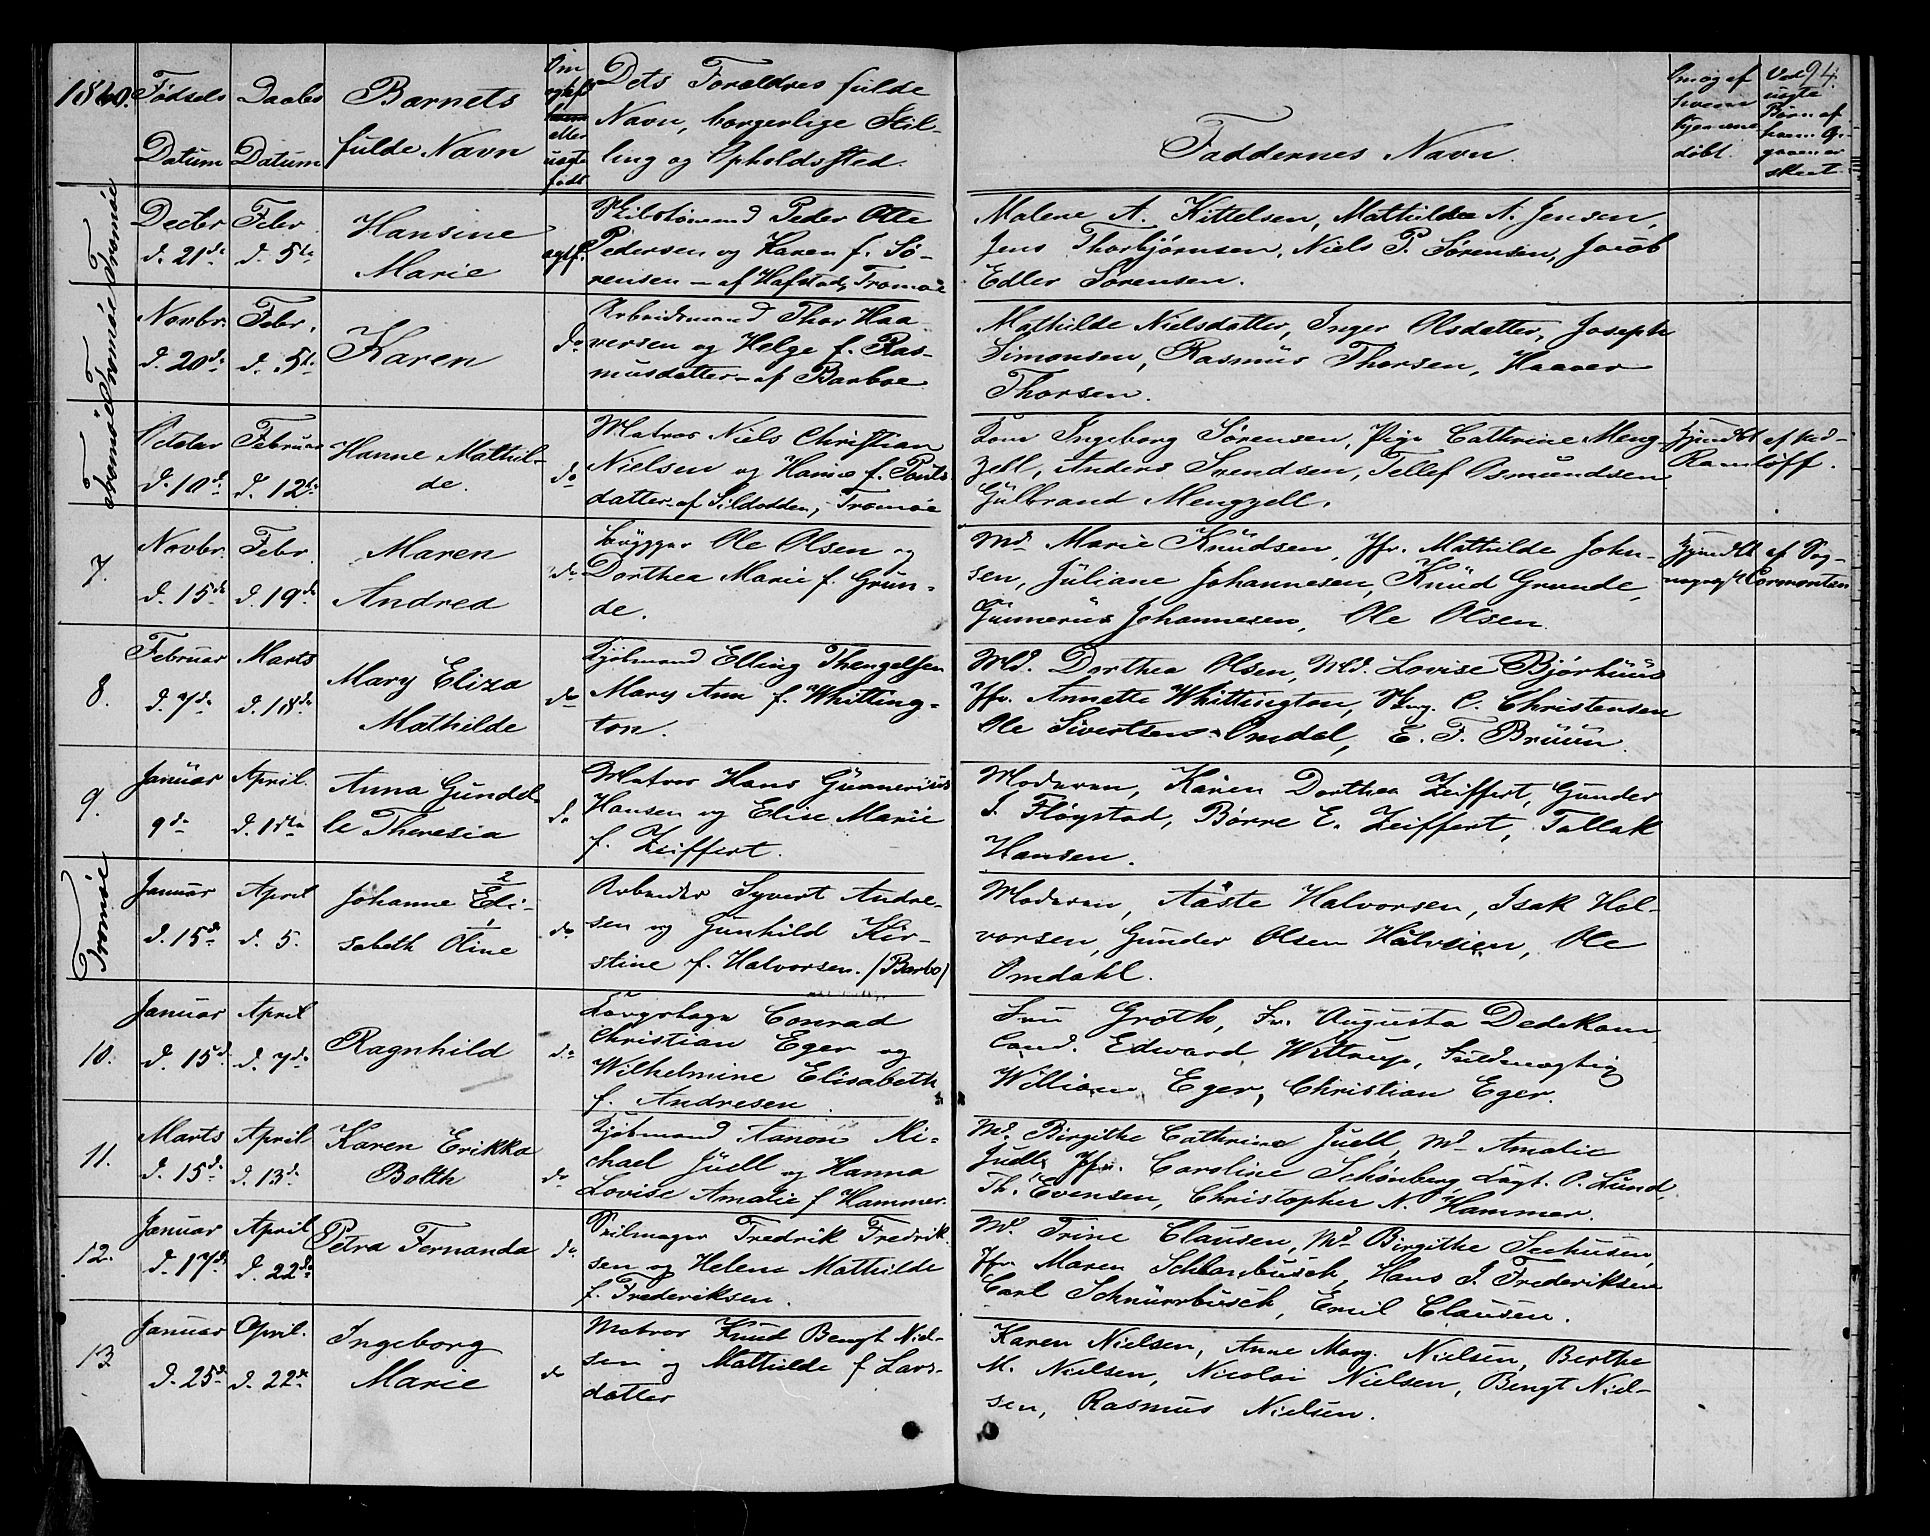 1860.
Fødsels Datum
Daabs Datum
Barnets fulde Navn
Om ægtef. eller uægte født
Dets Forældres fulde
Navn, borgerlige Stil-
ling og Opholdssted.
Faddernes Navn.
Om og af hvem hjemmedøbt.
94.
Tromøe
Decbr d. 21de
Febr d. 5te
Hansine
Marie
ægtf.
Peder Olle
Pedersen og Karen f. Sø-
rensen – af Hafstad, Tromøe
Malene A. Kittelsen, Mathilde A. Jensen,
Jens Thorbjørnsen, Niels P. Sørensen, Jacob
Edler Sørensen.
Tromøe
Novbr. d. 20de
Febr. d. 5te
Karen
do
Arbeidsmand Thor Haa
versen og Helge f. Ras-
musdatter – af Barboe
Mathilde Nielsdatter, Inger Olsdatter, Joseph
Simonsen, Rasmus Thorsen, Haaver
Thorsen.
Tromøe
October d. 10de
Februar d. 12te
Hanne Mathil-
de.
do
Matros Niels Christian
Nielsen og Hanne f.
datter – af Sildodden, Tromøe
Ingeborg Sørensen, Pige Cathrine Meng-
zell, Anders Svendsen, Tellef Osmundsen
Gulbrand Mengzell.
Hjemdbt af
Ramløff.
7.
Novbr. d. 15de
Febr d. 19de
Maren
Andrea
do
Brygger Ole Olsen og
Dorthea Marie f. Grun-
de.
Md. Marie Knudsen, Jfr. Mathilde John-
sen, Juliane Johannesen, Knud Grunde,
Gunnerus Johannesen, Ole Olsen.
Hjemdbt af Sog-
nepræst Normontan
8.
Februar d. 7de
Marts d. 18de
Mary Eliza
Mathilde
do
Kjøbmand Elling Thengelsen
Mary Ann f. Whitting-
ton.
Md. Dorthea Olsen, Md. Lovise Bjørhuus
Jfr. Annette Whittington, C. Christensen
Ole Sivertsen Omdal, E. F. Bruun.
9.
Januar 9de
April. d. 1ste
Anna Gundel-
le Theresia
do
Matros Hans Gunnerius
Hansen og Elise Marie
f. Zeiffert.
Moderen, Karen Dorthea Zeiffert, Gunder
S. Fløystad, Børre E. Zeiffert, Tallak
Hansen.
Tromøe
Januar d. 15de
April d. 5.
Johanne Eli-
2
1
sabeth Oline
do
Arbeider Syvert Andre-
sen og Gunhild Kir-
stine f. Halvorsen. (Barbo)
Moderen, Aaste Halvorsen, Isak Hal-
vorsen, Gunder Olsen, Ole
Omdahl.
10.
Januar d. 15de
April d. 7de
Ragnhild
do
Conrad
Christian Eger og
Wilhelmine Elisabeth
f. Andresen.
Fru Groth, Fr. Augusta Dedekam
Cand. Edward Wittrup, Fuldmægtig
William Eger, Christian Eger.
11.
Marts d. 15de
April d. 13de
Karen Erikka
Bolth
do
Kjøbmand Aanon Mi-
chael Juell og Hanna
Lovise Amalie f Hammer.
Md. Birgithe Cathrine Juell, Md Amalie
Juell, Jfr. Caroline Schønberg, O. Lund,
Th. Evensen, Christopher N. Hammer.
12.
Januar d. 17de
April d. 22de
Petra Fernanda
do
Seilmager Fredrik Fredrik
sen og Helene Mathilde
f. Frederiksen.
Md. Trine Clausen, Md Birgithe Seehusen,
Jfr. Maren, Hans J. Frederiksen
Carl Schnurrbusch, Emil Clausen.
13
Januar d. 25de
April. d. 22de
Ingeborg
Marie
do
Matros Knud Bengt Niel-
sen og Mathilde f Lars-
datter
Karen Nielsen, Anne Marg. Nielsen, Berthe
M. Nielsen, Nicolai Nielsen, Bengt Niel-
sen, Rasmus Nielsen.